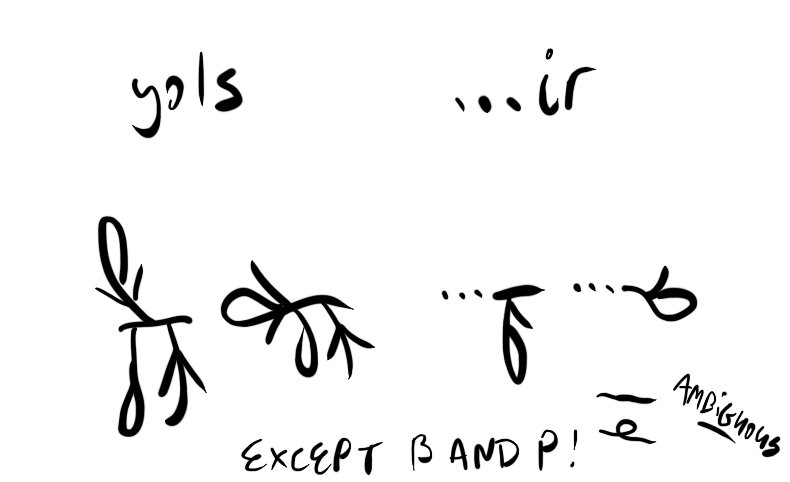 yols ...ir
EXCEPT B AND P!
AMBiGUOUS